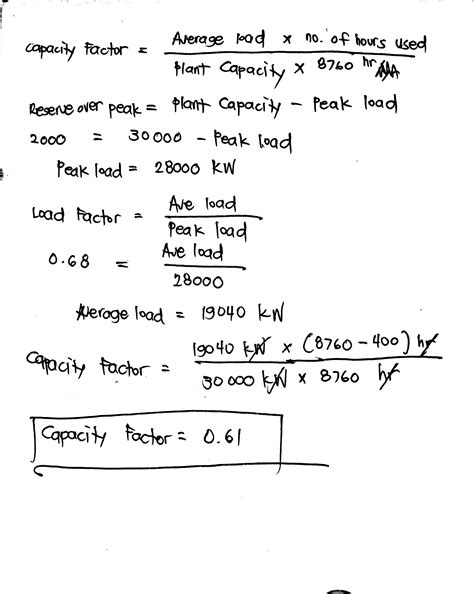 Capacity Factor = Average load x no. of hours used / Plant Capacity x 8760 hr
Reserve over peak = Plant Capacity - Peak load
2000 = 30000 - Peak load
Peak load = 28000 KW
Load Factor = Ave load / Peak load
0.68 = Ave load / 28000
Average load = 19040 kW
Capacity Factor = 19040 kW x (8760 - 400) hr / 30000 kW x 8760 hr
Capacity Factor = 0.61